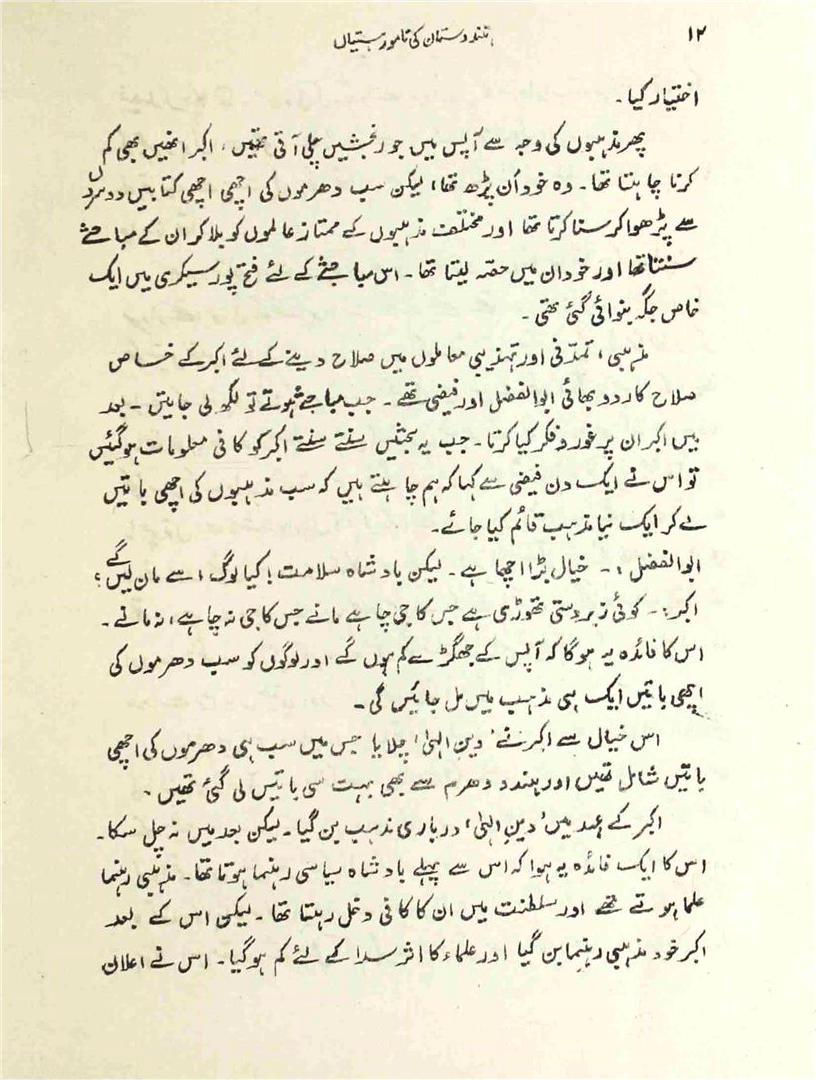 ۱۲
ہندوستان کی نامور ہستیاں
اختیار کیا۔
پھر مذہبوں کی وجہ سے آپس میں جو رنجشیں چلی آتی تھیں، اکبر انھیں بھی کم
کرنا چاہتا تھا۔ وہ خود اَن پڑھ تھا، لیکن سب دھرموں کی اچھی اچھی کتابیں دوسروں
سے پڑھوا کر سنا کرتا تھا اور مختلف مذہبوں کے ممتاز عالموں کو بلا کر ان کے مباحثے
سنتا تھا اور خود ان میں حصہ لیتا تھا۔ اس مباحثے کے لئے فتح پور سیکری میں ایک
خاص جگہ بنوائی گئی تھی۔
مذہبی، تمدّنی اور تہذیبی معاملوں میں صلاح دینے کے لئے اکبر کے خاص
صلاح کار دو بھائی ابوالفضل اور فیضی تھے۔ جب مباحثے ہوتے تو لکھ لی جایتیں۔ بعد
میں اکبر ان پر غور و فکر کیا کرتا۔ جب یہ بحثیں سنتے سنتے اکبر کو کافی معلومات ہوگئیں
تو اس نے ایک دن فیضی سے کہا کہ ہم چاہتے ہیں کہ سب مذہبوں کی اچھی باتیں
لے کر ایک نیا مذہب قائم کیا جائے۔
ابوالفضل :۔ خیال بڑا اچھا ہے۔ لیکن بادشاہ سلامت! کیا لوگ اسے مان لیں گے؟
اکبر :۔ کوئی زبردستی تھوڑی ہے جس کا جی چاہے مانے جس کا جی نہ چاہے، نہ مانے۔
اس کا فائدہ یہ ہوگا کہ آپس کے جھگڑے کم ہوں گے اور لوگوں کو سب دھرموں کی
اچھی باتیں ایک ہی مذہب میں مل جائیں گی۔
اس خیال سے اکبر نے ’دینِ الہیٰ‘ چلایا جس میں سب ہی دھرموں کی اچھی
باتیں شامل تھیں اور ہندو دھرم سے بھی بہت سی باتیں لی گئی تھیں۔
اکبر کے عہد میں ’دینِ الہیٰ‘ درباری مذہب بن گیا۔ لیکن بعد میں نہ چل سکا۔
اس کا ایک فائدہ یہ ہوا کہ اس سے پہلے بادشاہ سیاسی رہنما ہوتا تھا۔ مذہبی رہنما
علما ہوتے تھے اور سلطنت میں ان کا کافی دخل رہتا تھا۔ لیکن اس کے بعد
اکبر خود مذہبی رہنما بن گیا اور علماء کا اثر سدا کے لئے کم ہوگیا۔ اس نے اعلان